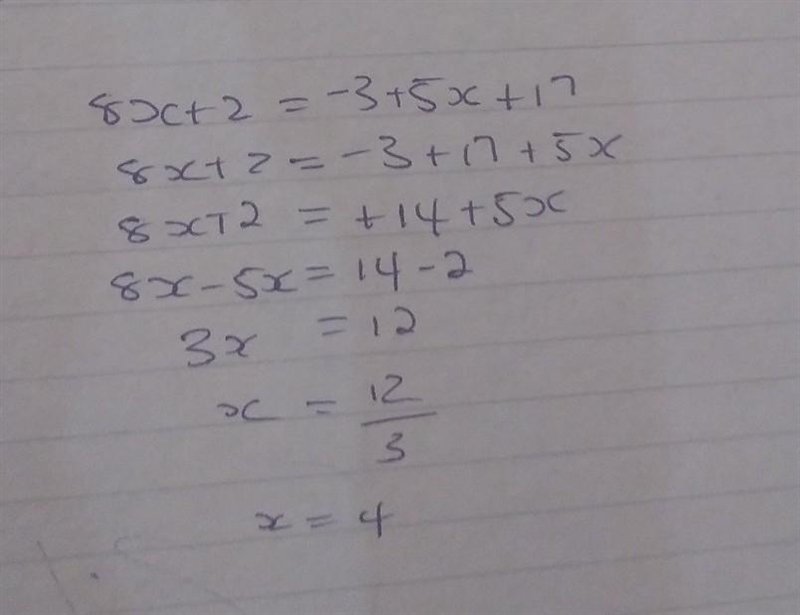 8x+2 = -3+5x+17
8x+2 = -3+17+5x
8x+2 = +14+5x
8x-5x = 14-2
3x = 12
x = 12/3
x = 4